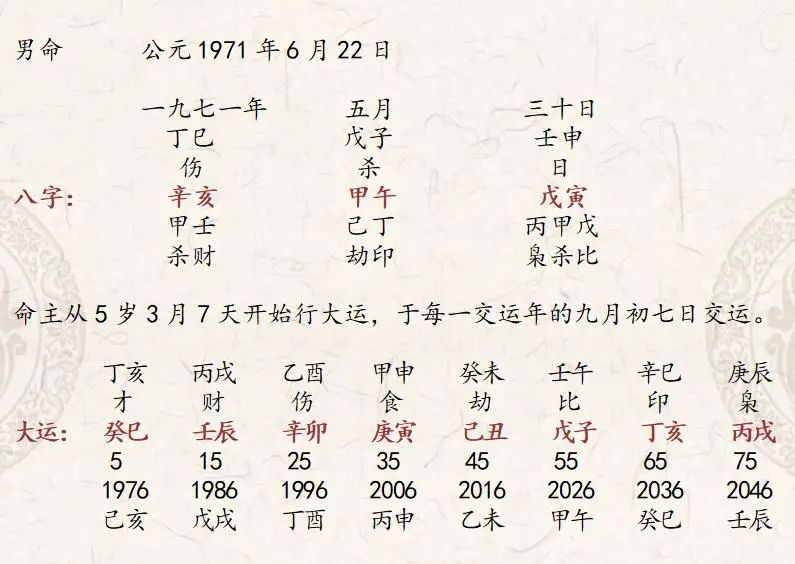 男命 公元1971年6月22日
一九七一年 五月 三十日
丁巳 戊子 壬申
伤 杀 日
八字: 辛亥 甲午 戊寅
甲壬 己丁 丙甲戊
杀财 劫印 枭杀比
命主从5岁3月7天开始行大运，于每一交运年的九月初七日交运。
丁亥 丙戌 乙酉 甲申 癸未 壬午 辛巳 庚辰
才 财 伤 食 劫 比 印 枭
大运: 癸巳 壬辰 辛卯 庚寅 己丑 戊子 丁亥 丙戌
5 15 25 35 45 55 65 75
1976 1986 1996 2006 2016 2026 2036 2046
己亥 戊戌 丁酉 丙申 乙未 甲午 癸巳 壬辰